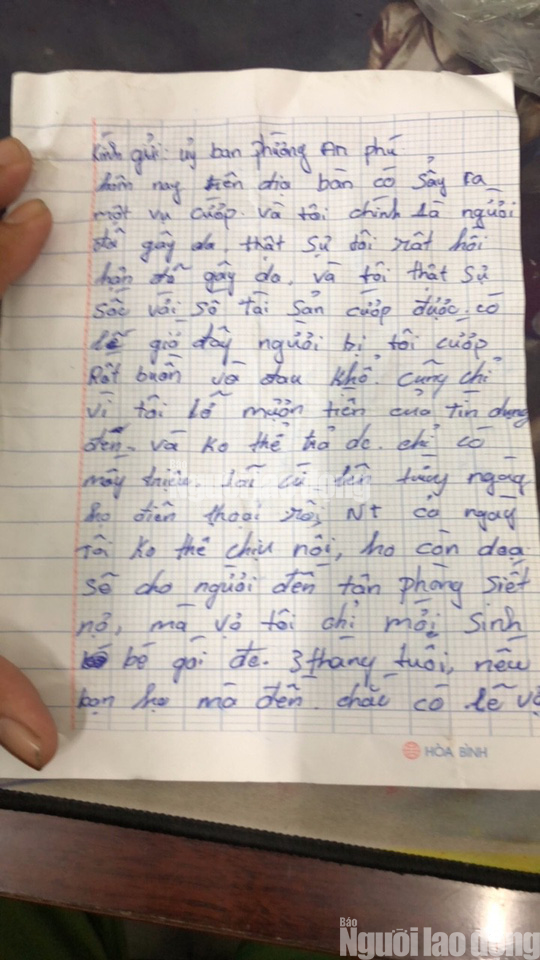 Kính gửi: uỷ ban phường An phú
hôm nay trên địa bàn có sảy ra
một vụ cướp. và tôi chính là người
đã gây da. thật sự tôi rất hối
hận đã gây da, và tôi thật sự
sốc với số tài sản cướp được. có
lẽ giờ đây người bị tôi cướp
Rất buồn và đau khổ. cũng chỉ
vì tôi lỡ mượn tiền của tín dụng
đen. và ko thể trả dc. chỉ có
mấy triệu lãi cứ lên từng ngày
họ điện thoại rồi, NT cả ngày
Tôi ko thể chịu nỗi, họ còn doạ
sẽ cho người đến tận phòng siết
nợ, mà vợ tôi chỉ mới sinh
bé gái đc. 3 tháng tuổi, nếu
bọn họ mà đến. chắc có lẽ vợ
HÒA BÌNH
Báo
Người lao động